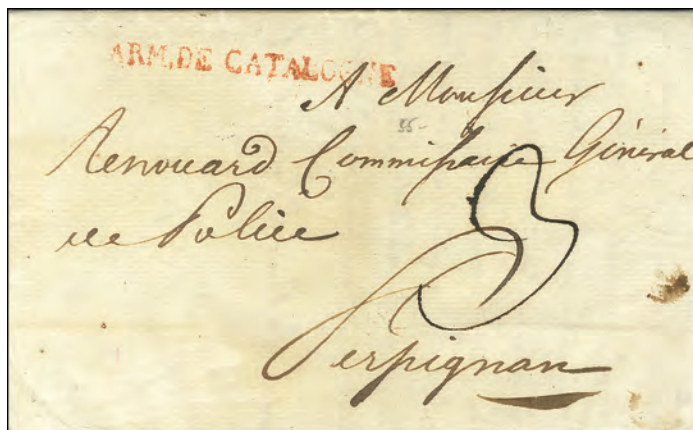 ARM. DE CATALOGNE
A Monsieur
55-
Renouard Commissaire Général
de Police
3
Perpignan